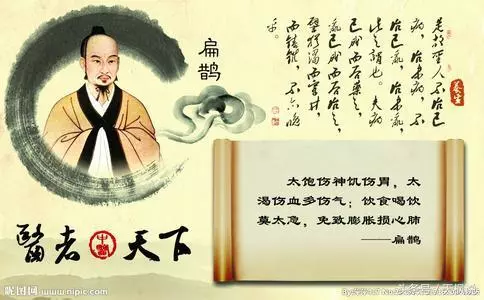 扁鹊
是故聖人不治已
病，治未病，不
治已亂，治未亂，
此之謂也。夫病
已成而后藥之，
亂已成而后治之，
譬猶渴而穿井，
而鑄錐，不亦晚
乎。
養生
太饱伤神饥伤胃，太
渴伤血多伤气；饮食喝饮
莫太急，免致膨胀损心肺
——扁鹊
醫者 中醫 天下
昵图网 www.nipic.com
头条号